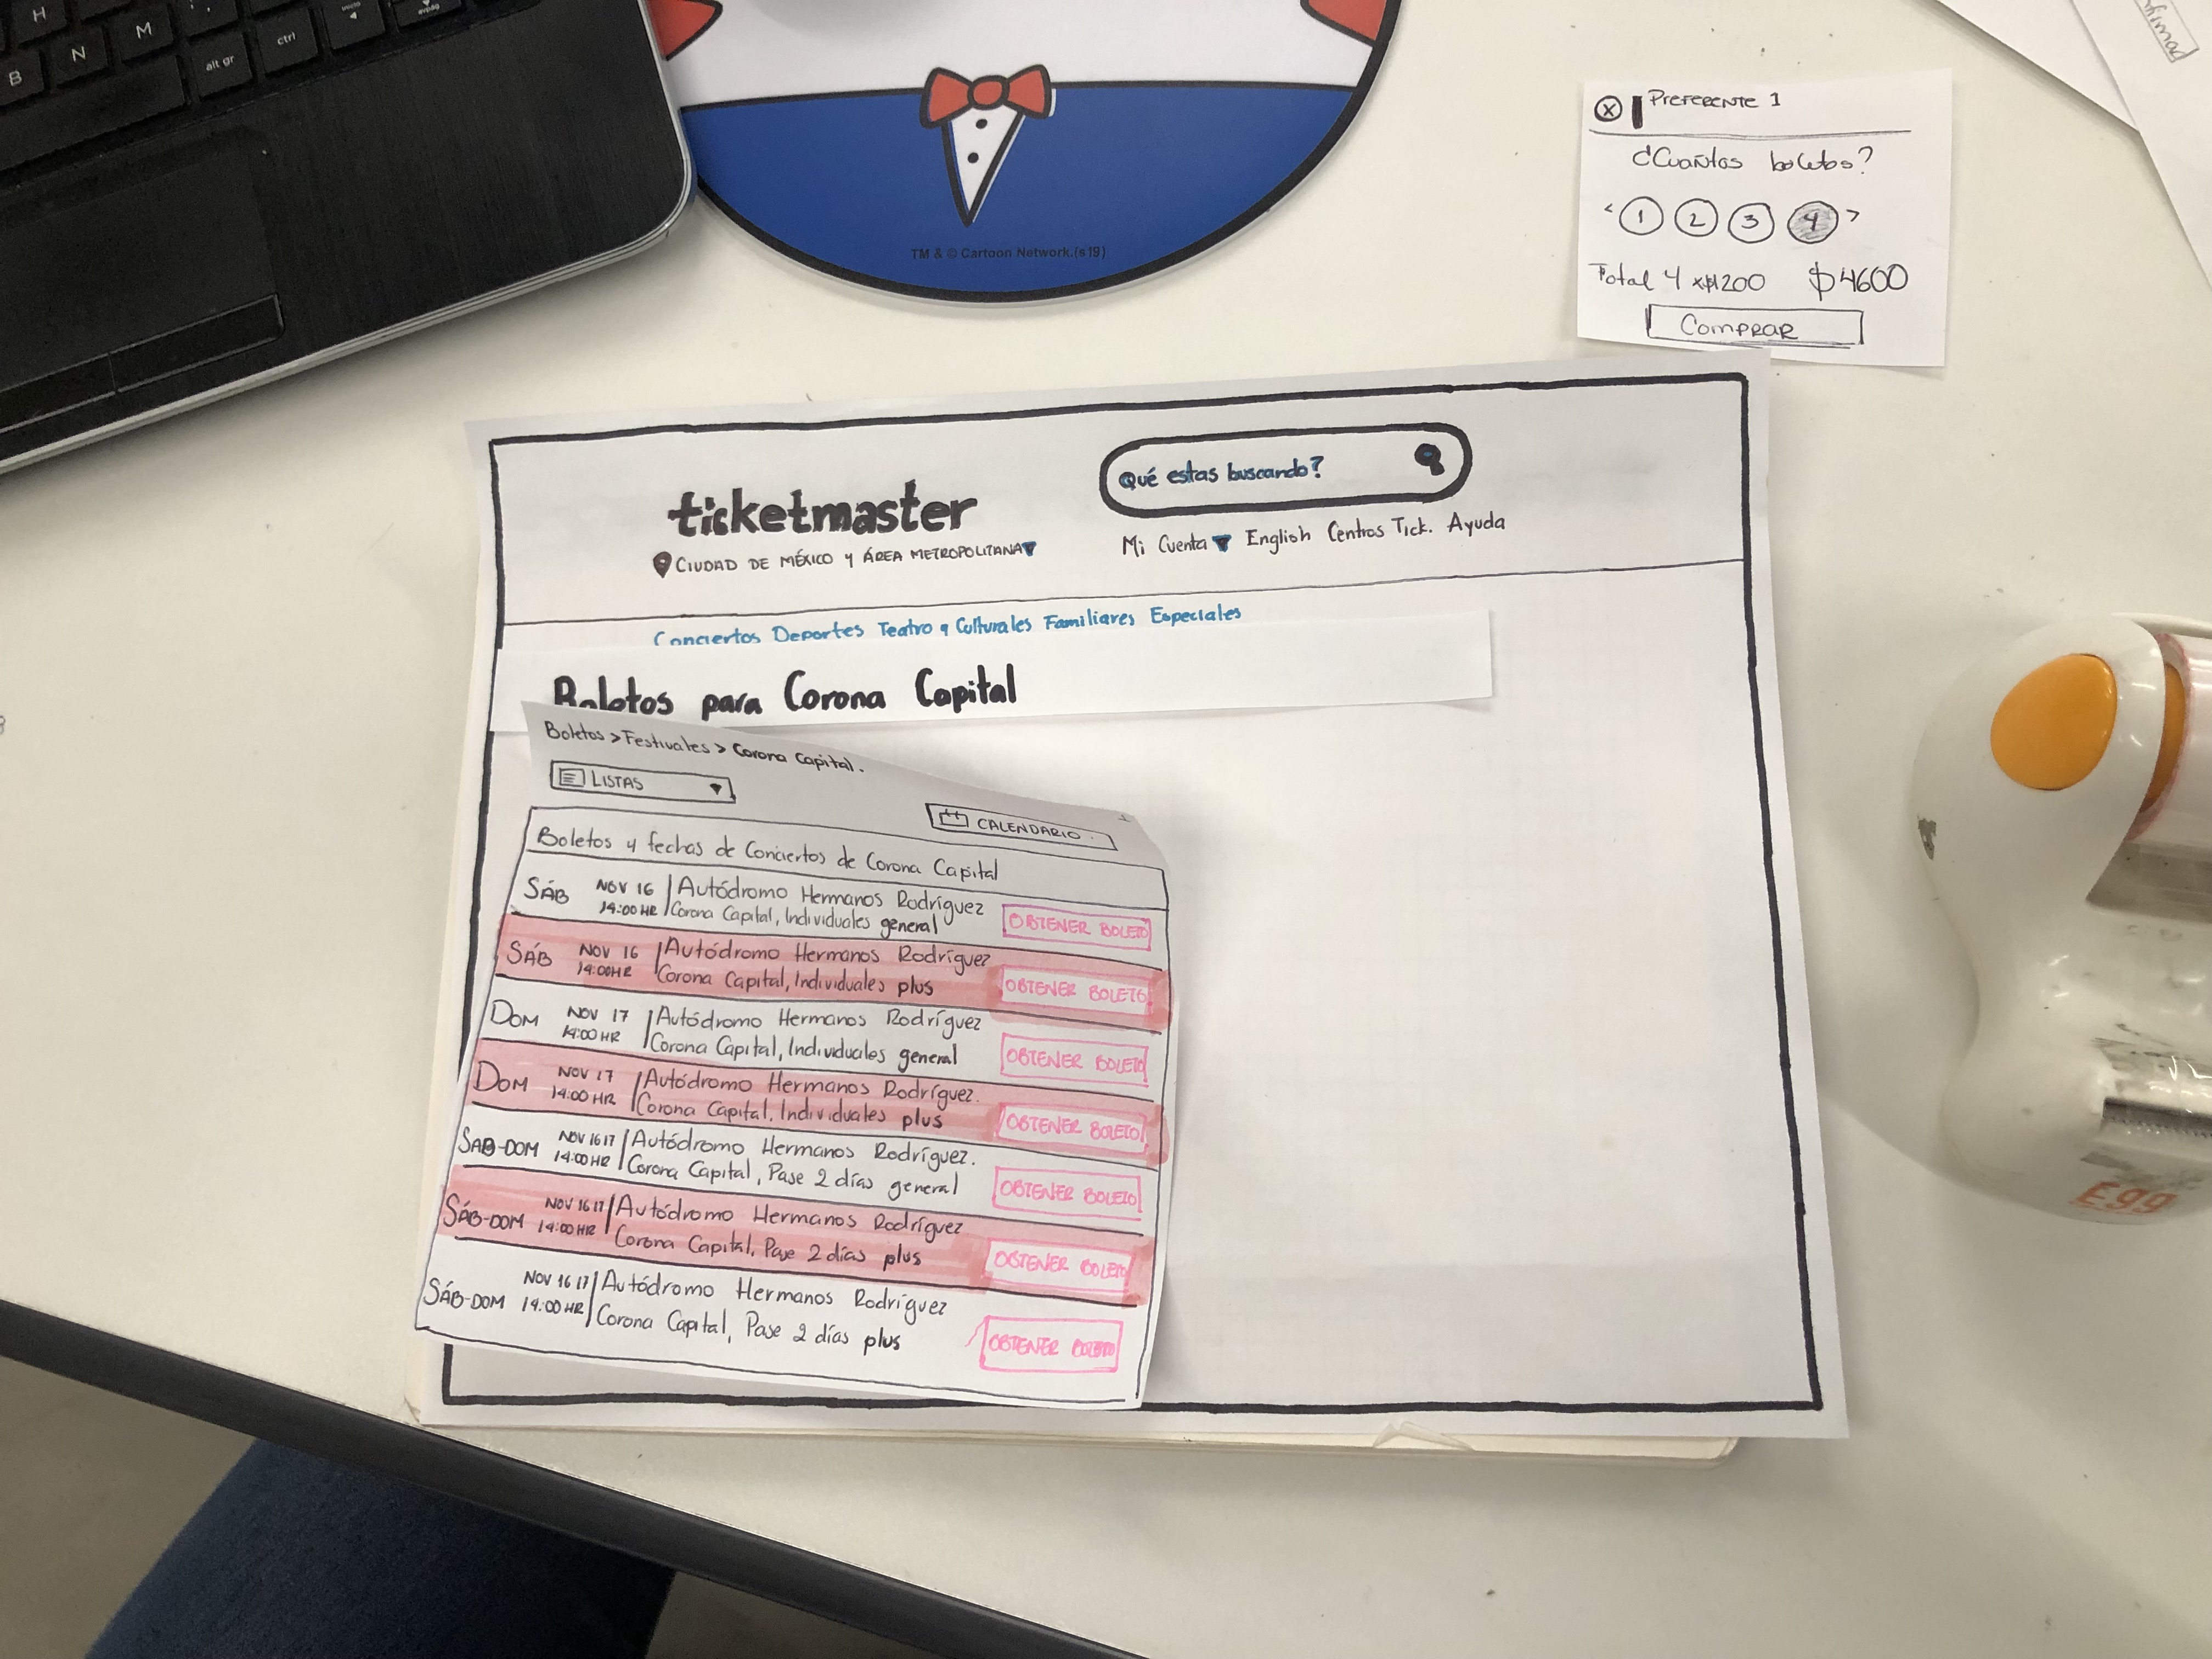 H
B N M
alt gr
ctrl
TM & © Cartoon Network.(s19)
Preferente 1
¿Cuantos boletos?
< 1 2 3 4 >
Total 4 x$1200 $4600
Comprar
ticketmaster
Qué estas buscando?
CIUDAD DE MÉXICO y ÁREA METROPOLITANA
Mi Cuenta English Centros Tick. Ayuda
Conciertos Deportes Teatro y Culturales Familiares Especiales
Boletos para Corona Capital
Boletos > Festivales > Corona Capital.
LISTAS
CALENDARIO
Boletos y fechas de Conciertos de Corona Capital
SÁB NOV 16 Autódromo Hermanos Rodríguez
14:00 HR Corona Capital, Individuales general OBTENER BOLETO
SÁB NOV 16 Autódromo Hermanos Rodríguez
14:00HR Corona Capital, Individuales plus OBTENER BOLETO
DOM NOV 17 Autódromo Hermanos Rodríguez
14:00 HR Corona Capital, Individuales general OBTENER BOLETO
DOM NOV 17 Autódromo Hermanos Rodríguez.
14:00 HR Corona Capital, Individuales plus OBTENER BOLETO
SÁB-DOM NOV 16 17 Autódromo Hermanos Rodríguez.
14:00 HR Corona Capital, Pase 2 días general OBTENER BOLETO
SÁB-DOM NOV 16 17 Autódromo Hermanos Rodríguez
14:00 HR Corona Capital, Pase 2 días plus OBTENER BOLETO
SÁB-DOM NOV 16 17 Autódromo Hermanos Rodríguez
14:00 HR Corona Capital, Pase 2 días plus OBTENER BOLETO
E99